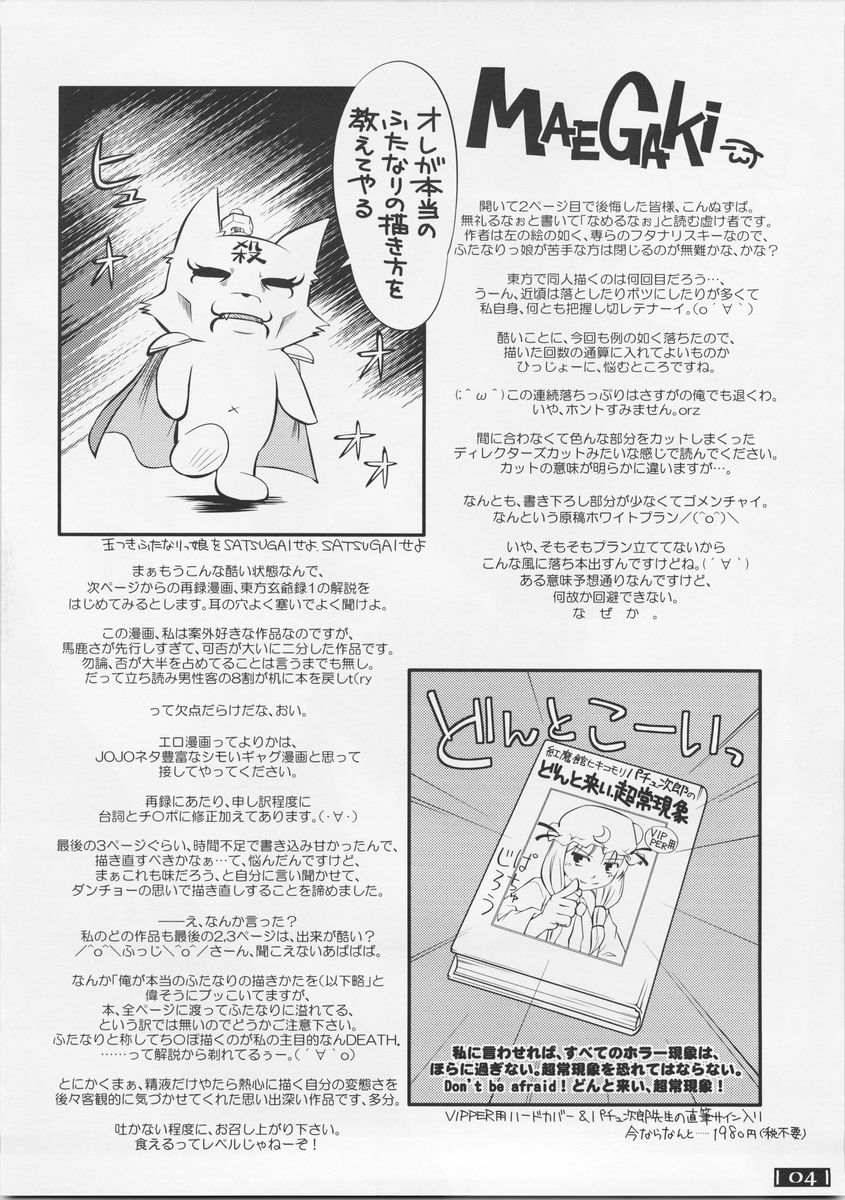 MAEGAKi
開いて2ページ目で後悔した皆様、こんぬずば。
無礼るなぉと書いて「なめるなぉ」と読む虚け者です。
作者は左の絵の如く、専らフタナリスキーなので、
ふたなりっ娘が苦手な方は閉じるのが無難かな、かな？
東方で同人描くのは何回目だろう…、
うーん、近頃は落としたりボツにしたりが多くて
私自身、何とも把握し切レテナーイ。(o´∀｀)
酷いことに、今回も例の如く落ちたので、
描いた回数の通算に入れてよいものか
ひっじょーに、悩むところですね。
(；＾ω＾)この連続落ちっぷりはさすがの俺でも退くわ。
いや、ホントすみません。orz
間に合わなくて色んな部分をカットしまくった
ディレクターズカットみたいな感じで読んでください。
カットの意味が明らかに違いますが…。
なんとも、書き下ろし部分が少なくてゴメンチャイ。
なんという原稿ホワイトプラン／(^o^)＼
いや、そもそもプラン立ててないから
こんな風に落ち本出すんですけどね。(´∀｀)
ある意味予想通りなんですけど、
何故か回避できない。
な　ぜ　か　。
オレが本当の
ふたなりの描き方を
教えてやる
ヒュ
オ
オ
オ
殺
玉つきふたなりっ娘をSATSUGAIせよ、SATSUGAIせよ
まぁもうこんな酷い状態なんで、
次ページからの再録漫画、東方玄爺録1の解説を
はじめてみるとします。耳の穴よく塞いでよく聞けよ。
この漫画、私は案外好きな作品なのですが、
馬鹿さが先行しすぎて、可否が大いに二分した作品です。
勿論、否が大半を占めてることは言うまでも無し。
だって立ち読み男性客の8割が机に本を戻しt(ry
って欠点だらけだな、おい。
エロ漫画ってよりかは、
JOJOネタ豊富なシモいギャグ漫画と思って
接してやってください。
再録にあたり、申し訳程度に
台詞とチ○ポに修正加えてあります。(・∀・)
最後の3ページぐらい、時間不足で書き込み甘かったんで、
描き直すべきかなぁ…て、悩んだんですけど、
まぁこれも味だろう、と自分に言い聞かせて、
ダンチョーの思いで描き直しすることを諦めました。
――え、なんか言った？
私のどの作品も最後の2,3ページは、出来が酷い？
／^o^＼ふっじ＼^o^／さーん、聞こえないあばばば。
なんか「俺が本当のふたなりの描きかたを(以下略)」と
偉そうにブッこいてますが、
本、全ページに渡ってふたなりに溢れてる、
という訳では無いのでどうかご注意下さい。
ふたなりと称してち○ぽ描くのが私の主目的なんDEATH.
……って解説から剥れてるぅー。(´∀｀o)
とにかくまぁ、精液だけやたら熱心に描く自分の変態さを
後々客観的に気づかせてくれた思い出深い作品です、多分。
吐かない程度に、お召し上がり下さい。
食えるってレベルじゃねーぞ！
どんとこーいっ
紅魔館ヒキコモリパチュ次郎の
どんと来い、超常現象
VIPPER用
ぱちゅ
じろう
私に言わせれば、すべてのホラー現象は、
ほらに過ぎない。超常現象を恐れてはならない。
Don't be afraid！どんと来い、超常現象！
VIPPER用ハードカバー＆パチュ次郎先生の直筆サイン入り
今ならなんと……1980円(税不要)
04